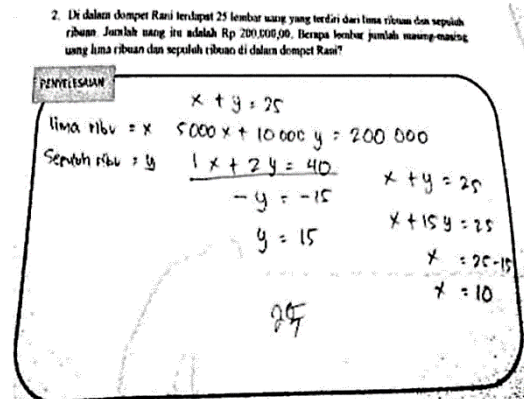 2. Di dalam dompet Rani terdapat 25 lembar uang yang terdiri dari lima ribuan dan sepuluh
ribuan. Jumlah uang itu adalah Rp 200.000,00. Berapa lembar jumlah masing-masing
uang lima ribuan dan sepuluh ribuan di dalam dompet Rani?
PENYELESAIAN
x + y = 25
lima ribu = x 5000 x + 10 000 y = 200 000
Sepuluh ribu = y 1 x + 2 y = 40
- y = -15
y = 15
x + y = 25
x + 15 y = 25
x = 25-15
x = 10